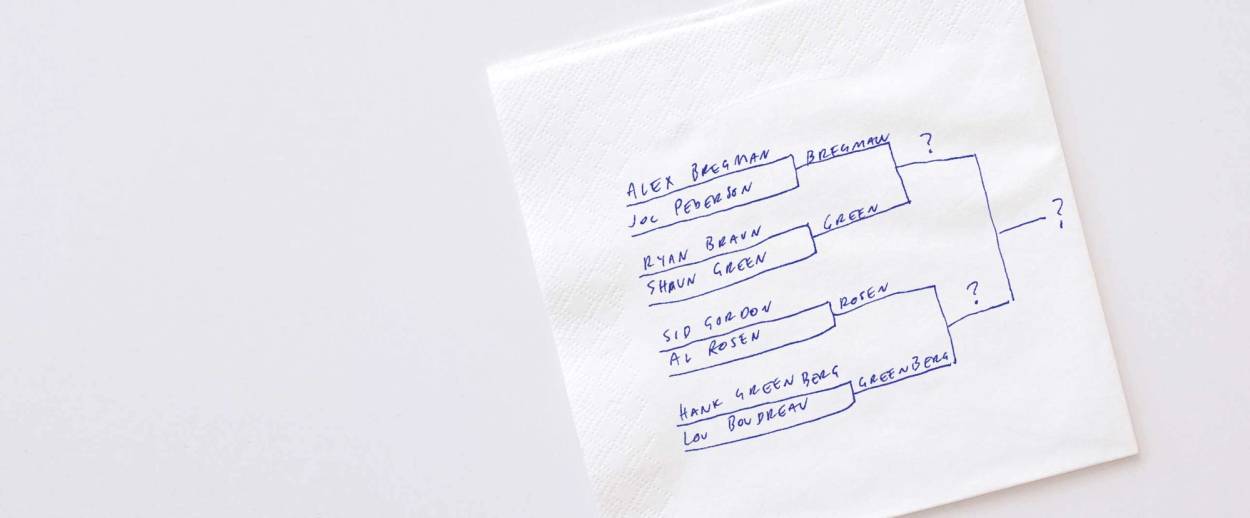 ALEX BREGMAN
BREGMAN
?
JOC PEDERSON
?
RYAN BRAUN
GREEN
SHAWN GREEN
SID GORDON
ROSEN
?
AL ROSEN
HANK GREENBERG
GREENBERG
LOU BOUDREAU